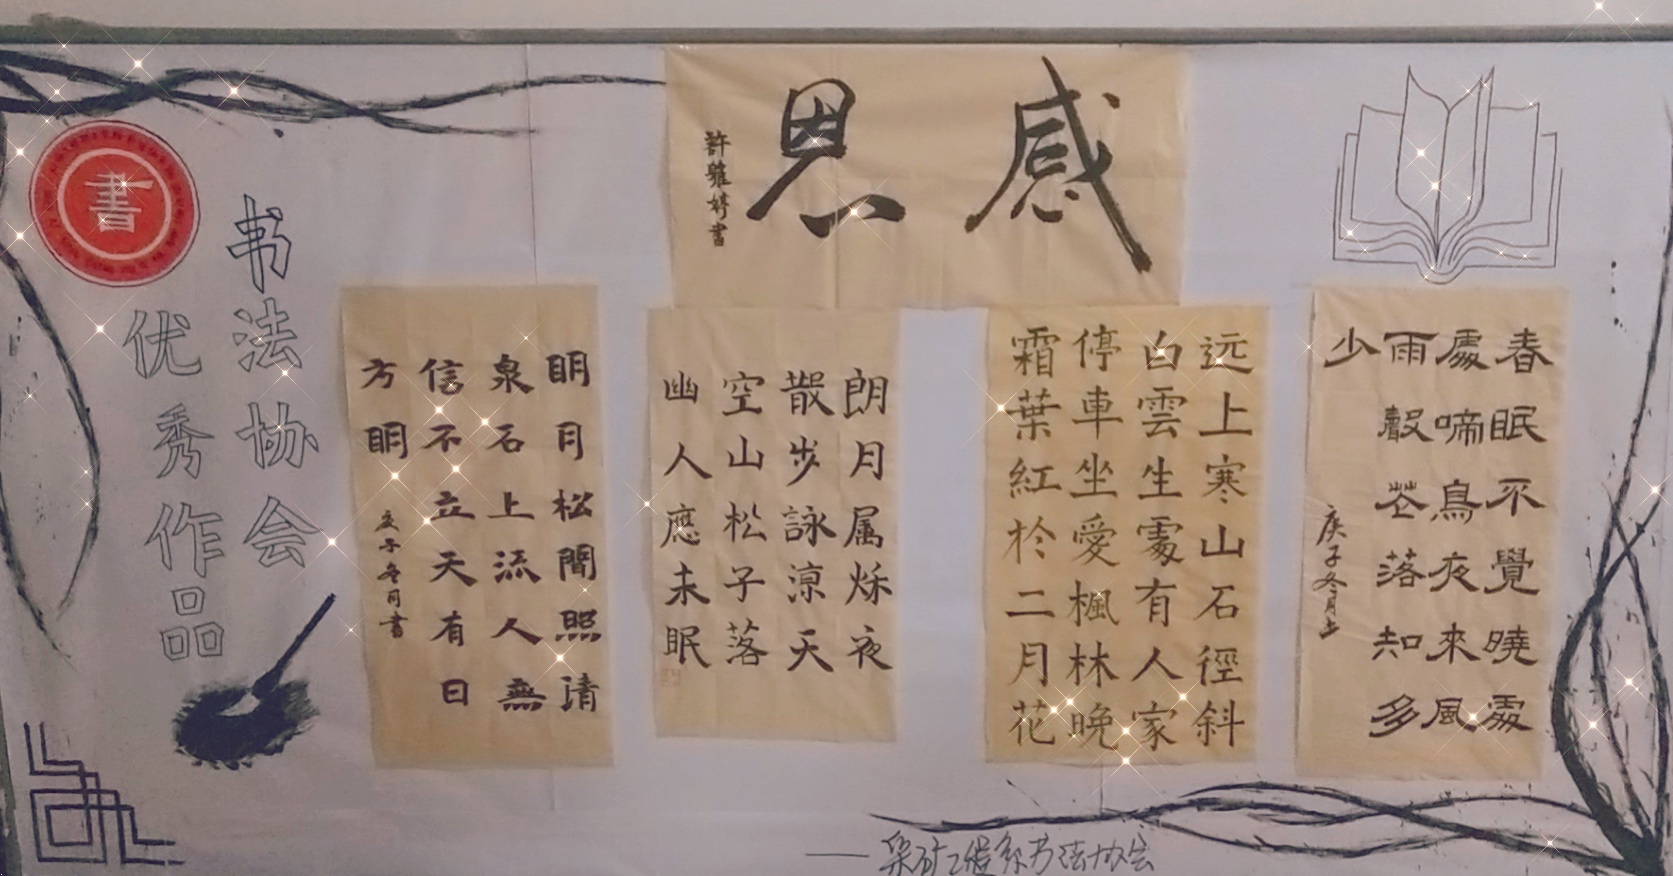 感恩
許雛婷書
書
书法协会
优秀作品
春眠不覺曉處
處啼鳥夜來風
雨聲花落知多
少
庚子冬月
远上寒山石徑斜
白雲生處有人家
停車坐愛楓林晚
霜葉紅於二月花
朗月属秌夜
散步詠涼天
空山松子落
幽人應未眠
明月松間照清
泉石上流人無
信不立天有日
方明
庚子冬月書
——采矿工程系书法协会